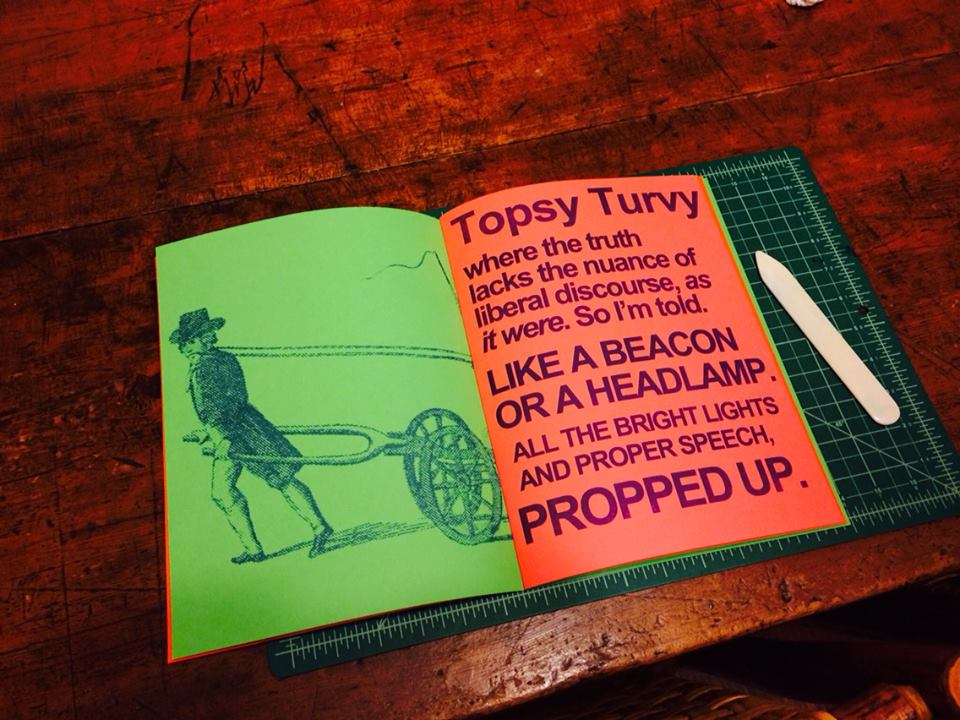 Topsy Turvy
where the truth
lacks the nuance of
liberal discourse, as
it were. So I'm told.
LIKE A BEACON
OR A HEADLAMP.
ALL THE BRIGHT LIGHTS
AND PROPER SPEECH,
PROPPED UP.